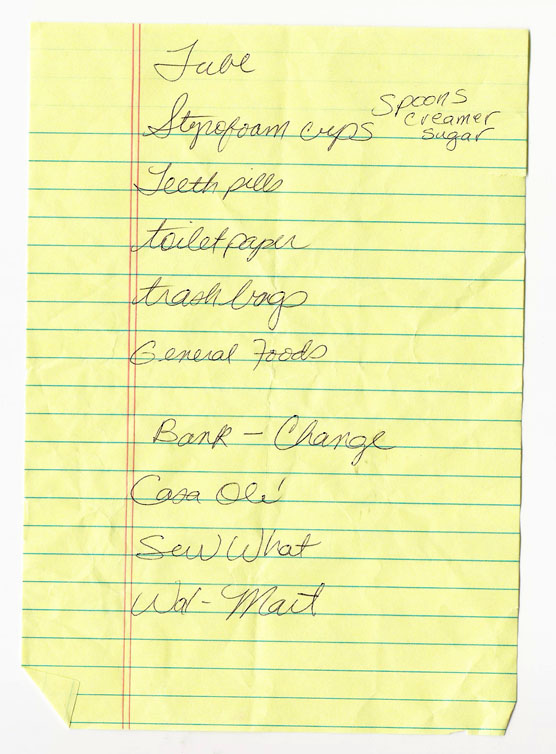 Tube
Styrofoam cups
Spoons
Creamer
Sugar
Teeth pills
toilet paper
trash bags
General Foods
Bank - Change
Casa Olé
Sew What
Wal-Mart